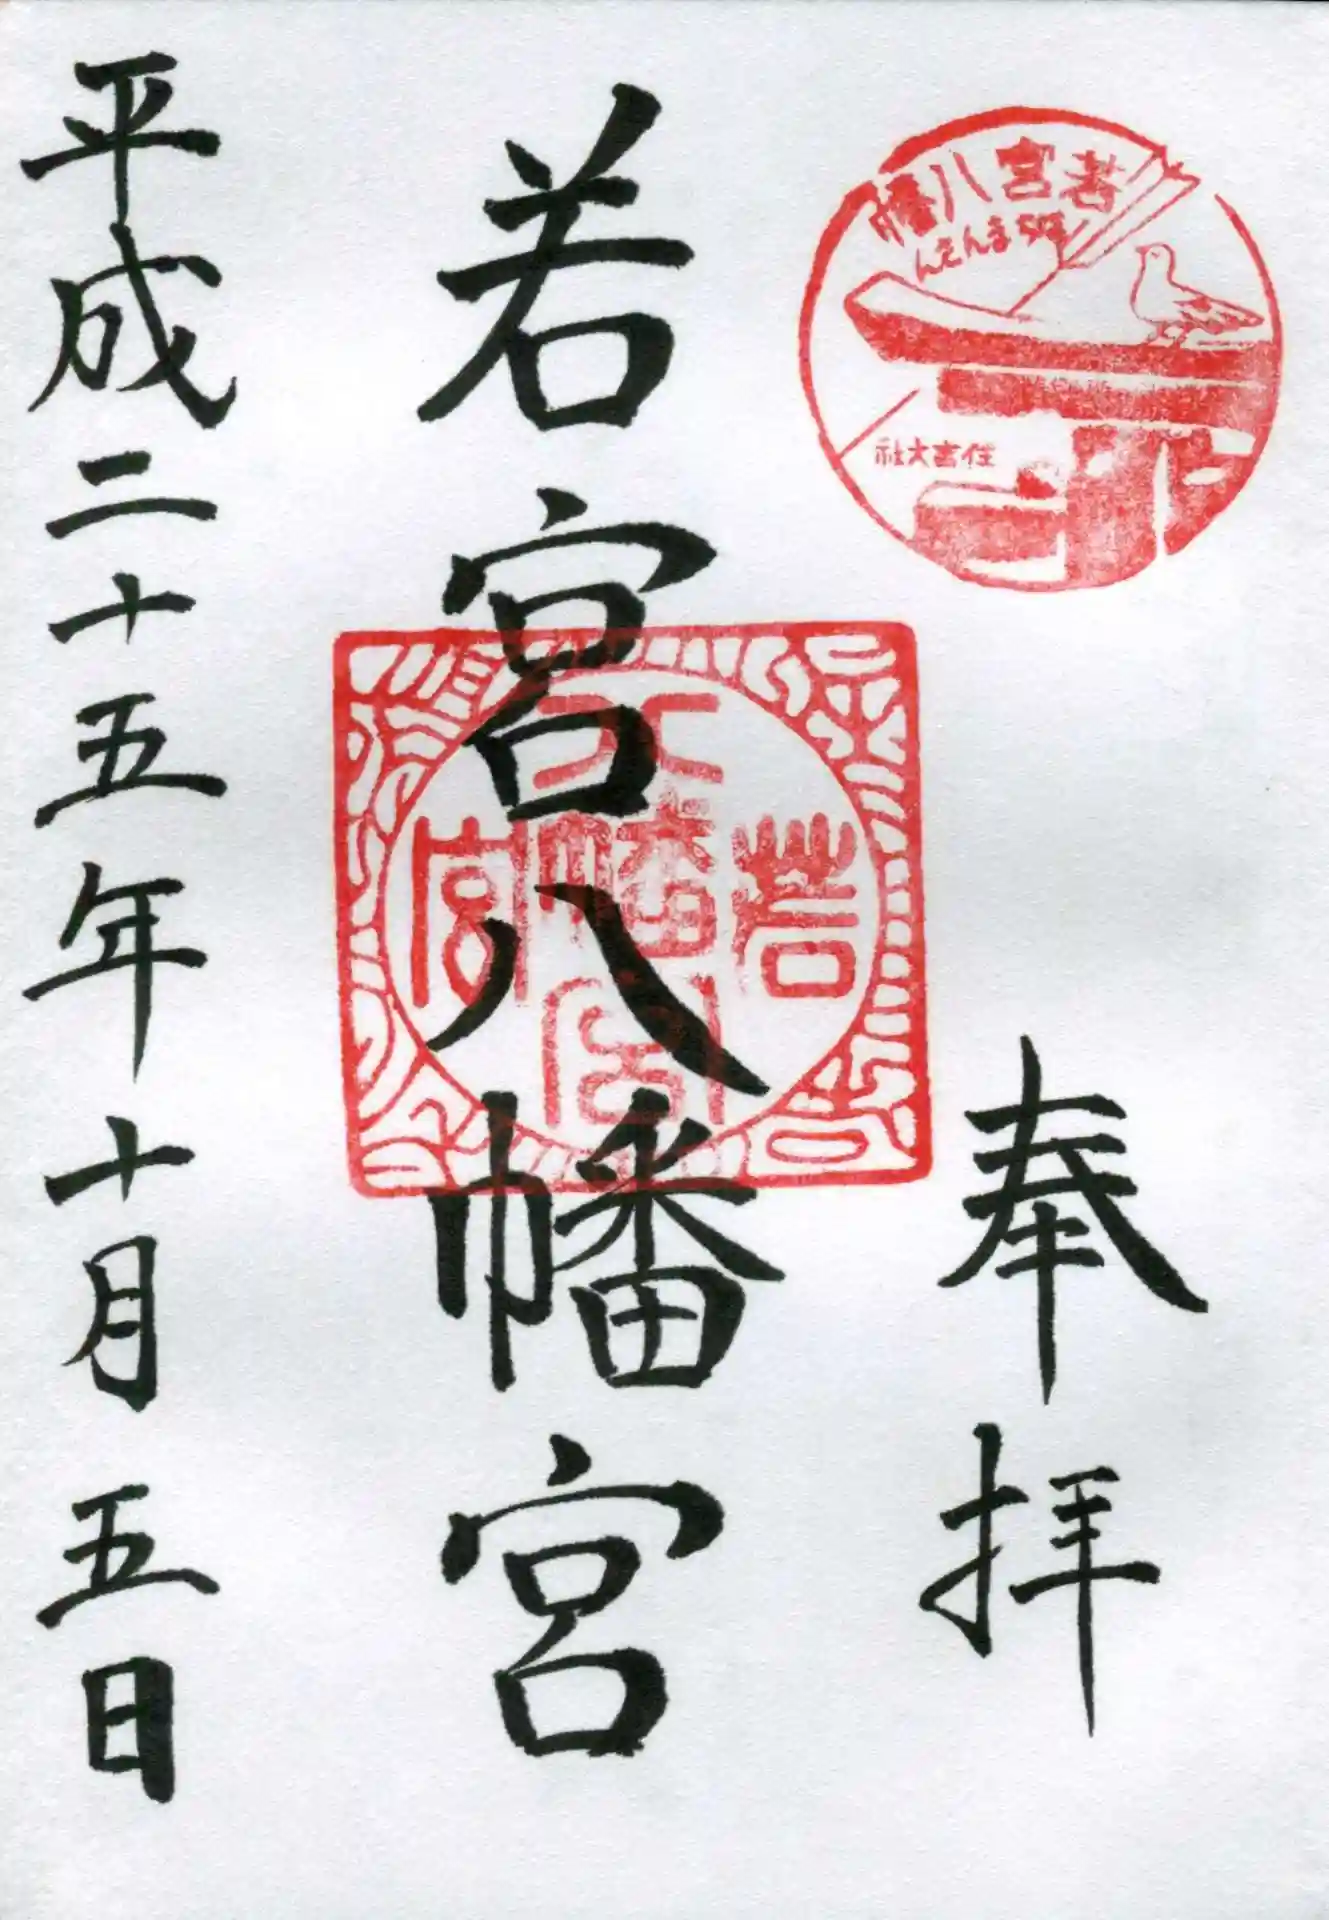 奉拝
若宮八幡
はちまんさん
住吉大社
若宮八幡宮
八幡宮
平成二十五年十月五日